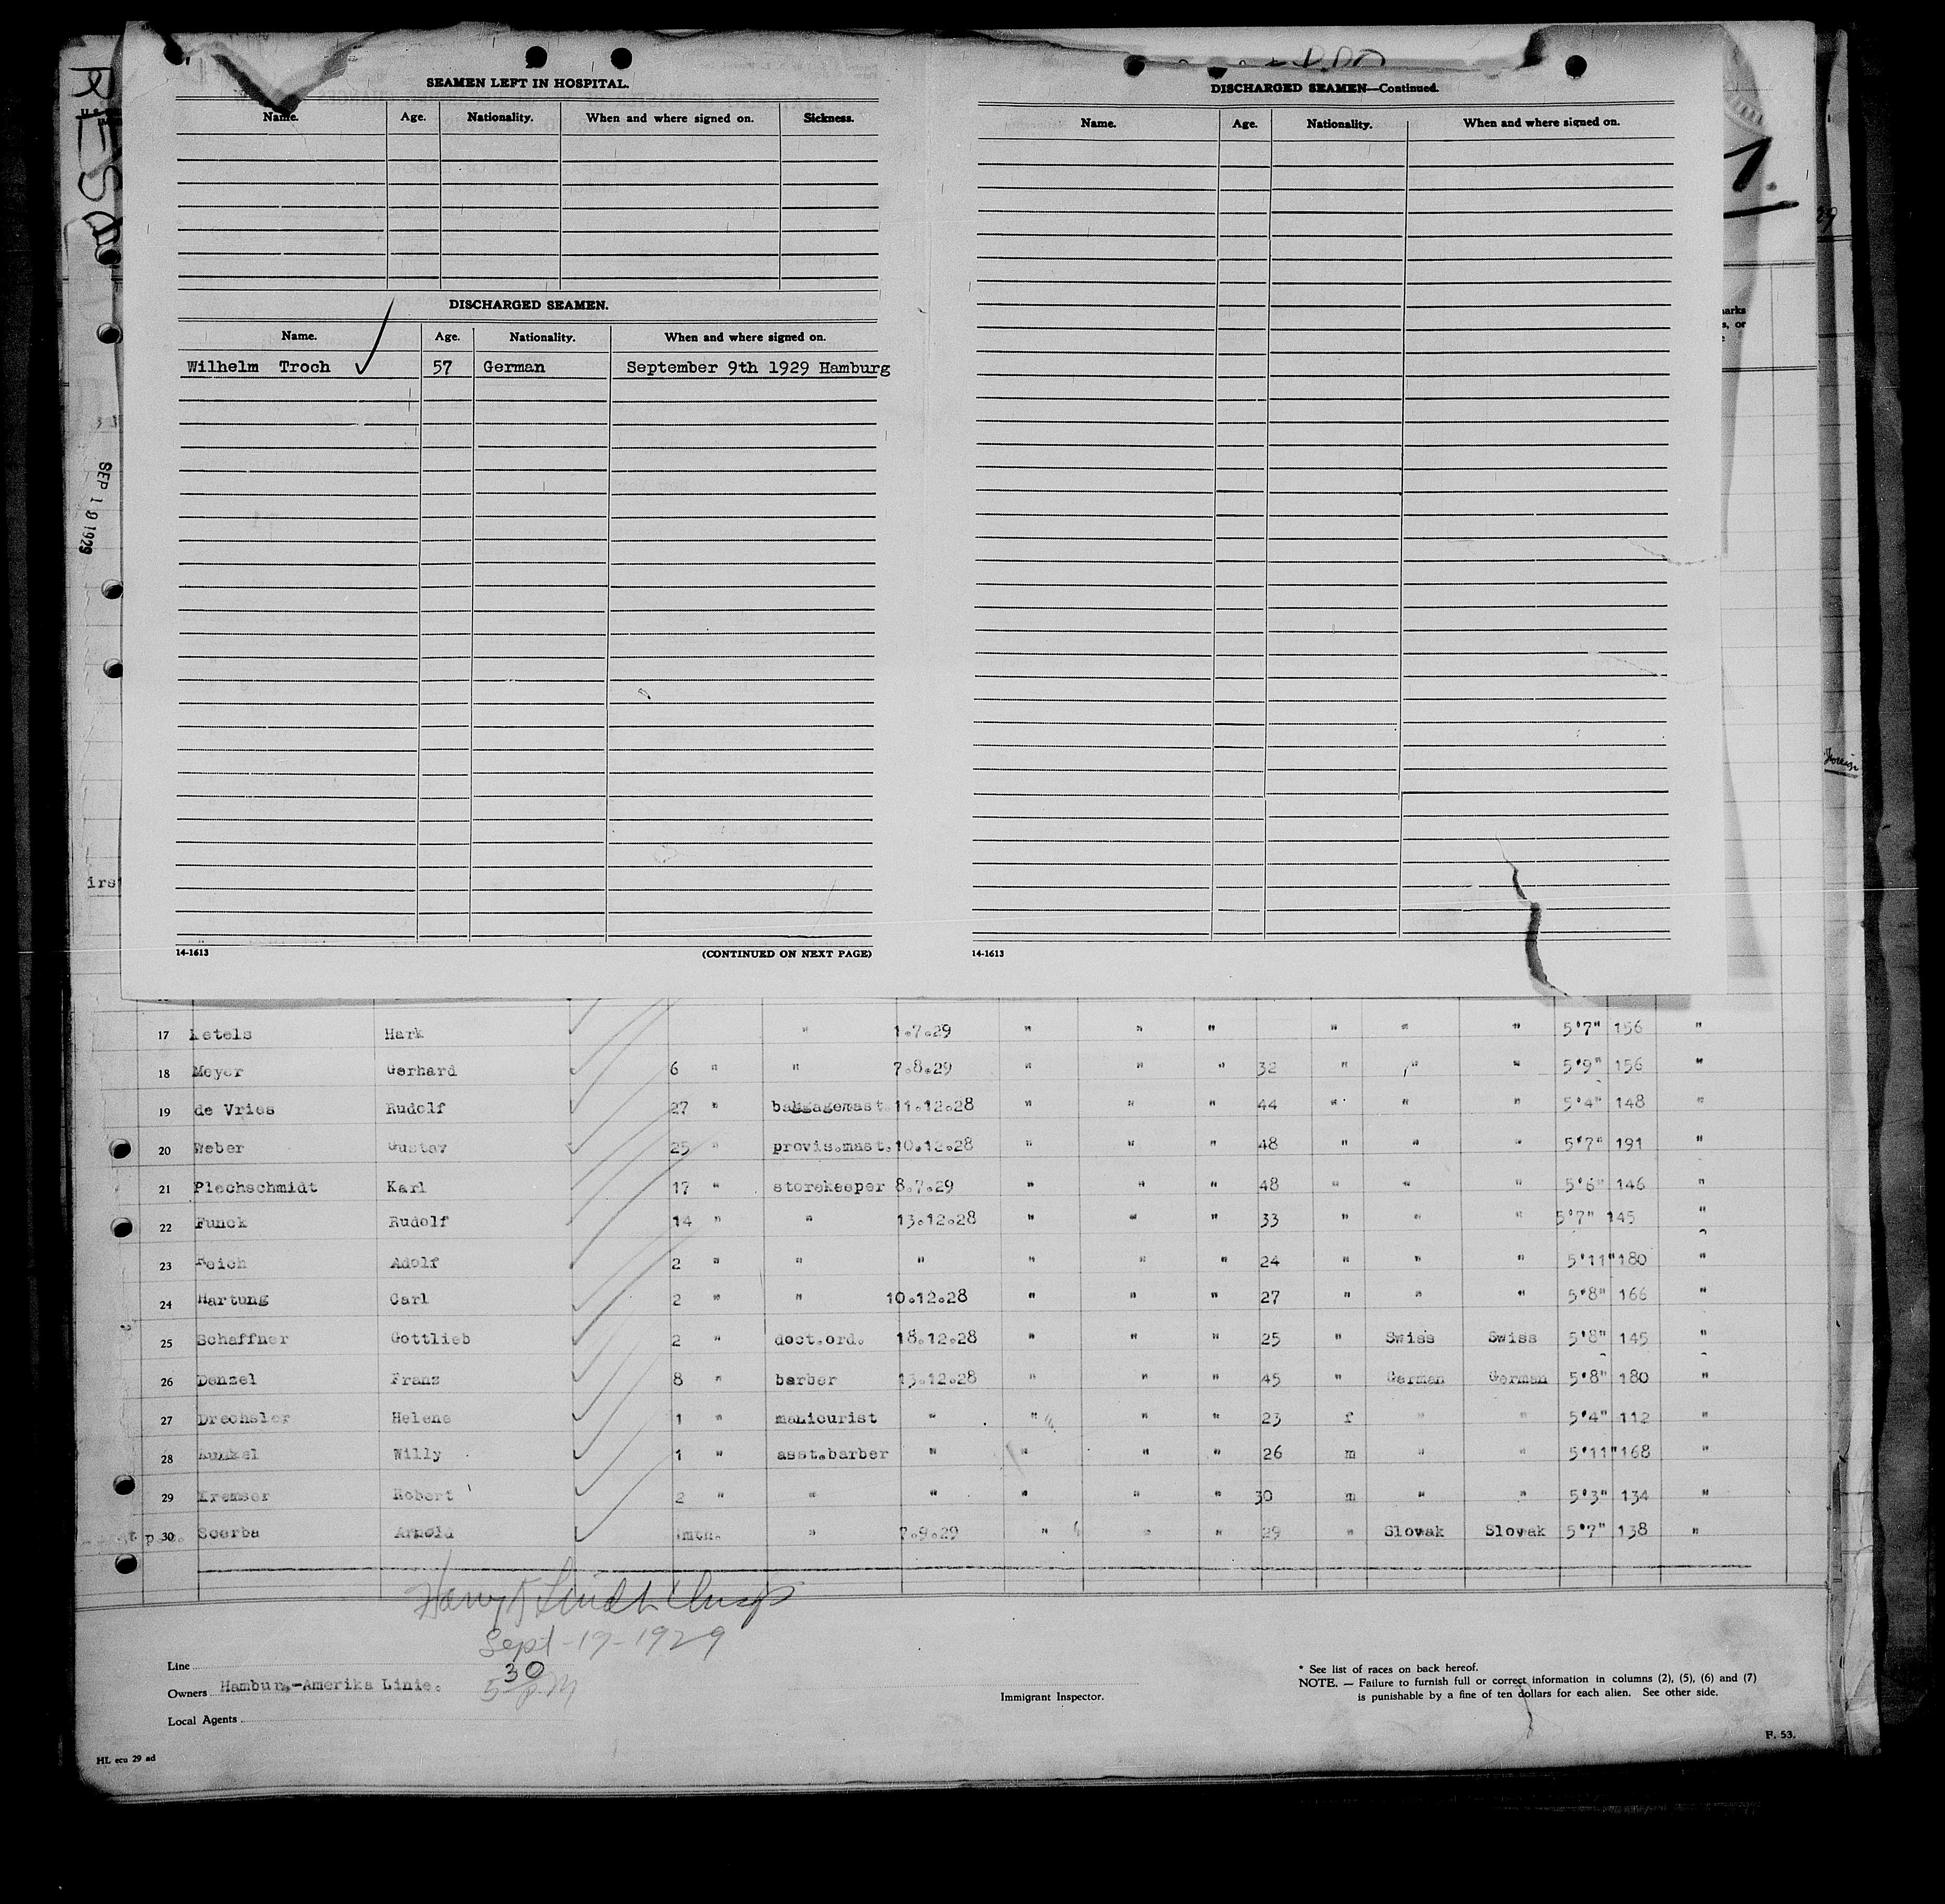 SEAMEN LEFT IN HOSPITAL.
Name. Age. Nationality. When and where signed on. Sickness.
DISCHARGED SEAMEN.
Name. Age. Nationality. When and where signed on.
Wilhelm Troch 57 German September 9th 1929 Hamburg
14-1613 (CONTINUED ON NEXT PAGE)
DISCHARGED SEAMEN—Continued.
Name. Age. Nationality. When and where signed on.
14-1613
SEP 19 1929
17 Ketels Hark " 1.7.29 " " " " " " 5'7" 156 "
18 Meyer Gerhard 6 " " 7.8.29 " " " 32 " " " 5'9" 156 "
19 de Vries Rudolf 27 " baggagemast. 11.12.28 " " " 44 " " " 5'4" 148 "
20 Weber Gustav 25 " provis.mast. 10.12.28 " " " 48 " " " 5'7" 191 "
21 Plechschmidt Karl 17 " storekeeper 8.7.29 " " " 48 " " " 5'6" 146 "
22 Funck Rudolf 14 " " 13.12.28 " " " 33 " " " 5'7" 145 "
23 Adolf 2 " " " " " " 24 " " " 5'11" 180 "
24 Hartung Carl 2 " " 10.12.28 " " " 27 " " " 5'8" 166 "
25 Schaffner Gottlieb 2 " doct.ord. 18.12.28 " " " 25 " Swiss Swiss 5'8" 145 "
26 Denzel Franz 8 " barber 13.12.28 " " " 45 " German German 5'8" 180 "
27 Drechsler Helene 1 " manicurist " " " " 23 f " " 5'4" 112 "
28 Kunkel Willy 1 " asst.barber " " " " 26 m " " 5'11" 168 "
29 Kremser Robert 2 " " " " " " 30 m " " 5'3" 134 "
30 Scerba Arnold mth. " 7.9.29 " " " 29 " Slovak Slovak 5'7" 138 "
Sept-19-1929
5 30 PM
Line
Owners Hamburg-Amerika Linie.
Local Agents
Immigrant Inspector.
* See list of races on back hereof.
NOTE. — Failure to furnish full or correct information in columns (2), (5), (6) and (7)
is punishable by a fine of ten dollars for each alien. See other side.
F. 53.
HL ecu 29 ad